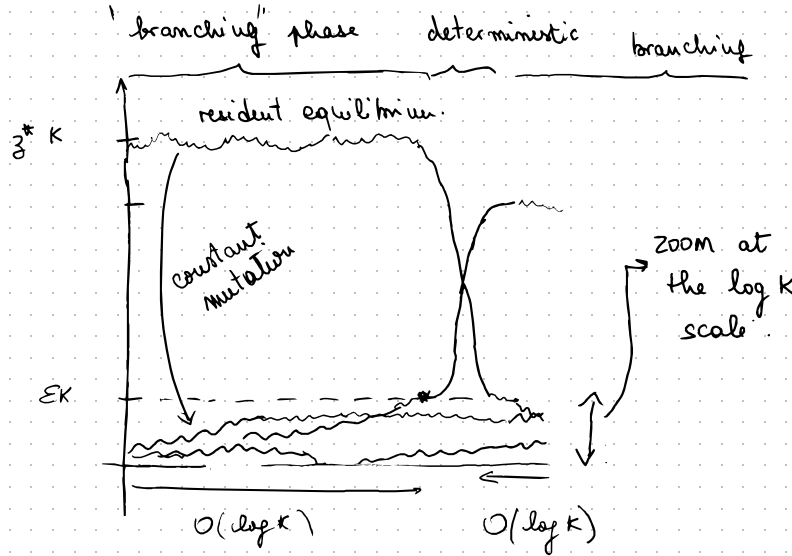 "branching" phase
deterministic
branching
resident equilibrium.
z* K
constant
mutation
zoom at
the log K
scale.
εK
O(log K)
O(log K)